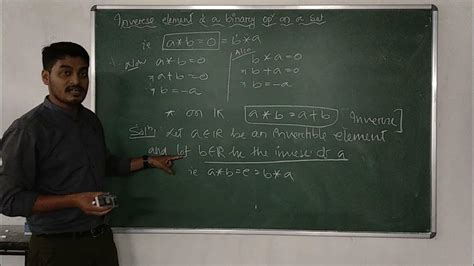 Inverse element of a binary op on a set
ie a*b=0=b*a
Now a*b=0
⇒ a+b=0
⇒ b=-a
Also
b*a=0
⇒ b+a=0
⇒ b=-a
* on IR a*b=a+b [Inverse]
Sol: Let a∈IR be an invertible element
and let b∈IR be the inverse of a
ie a*b=e=b*a